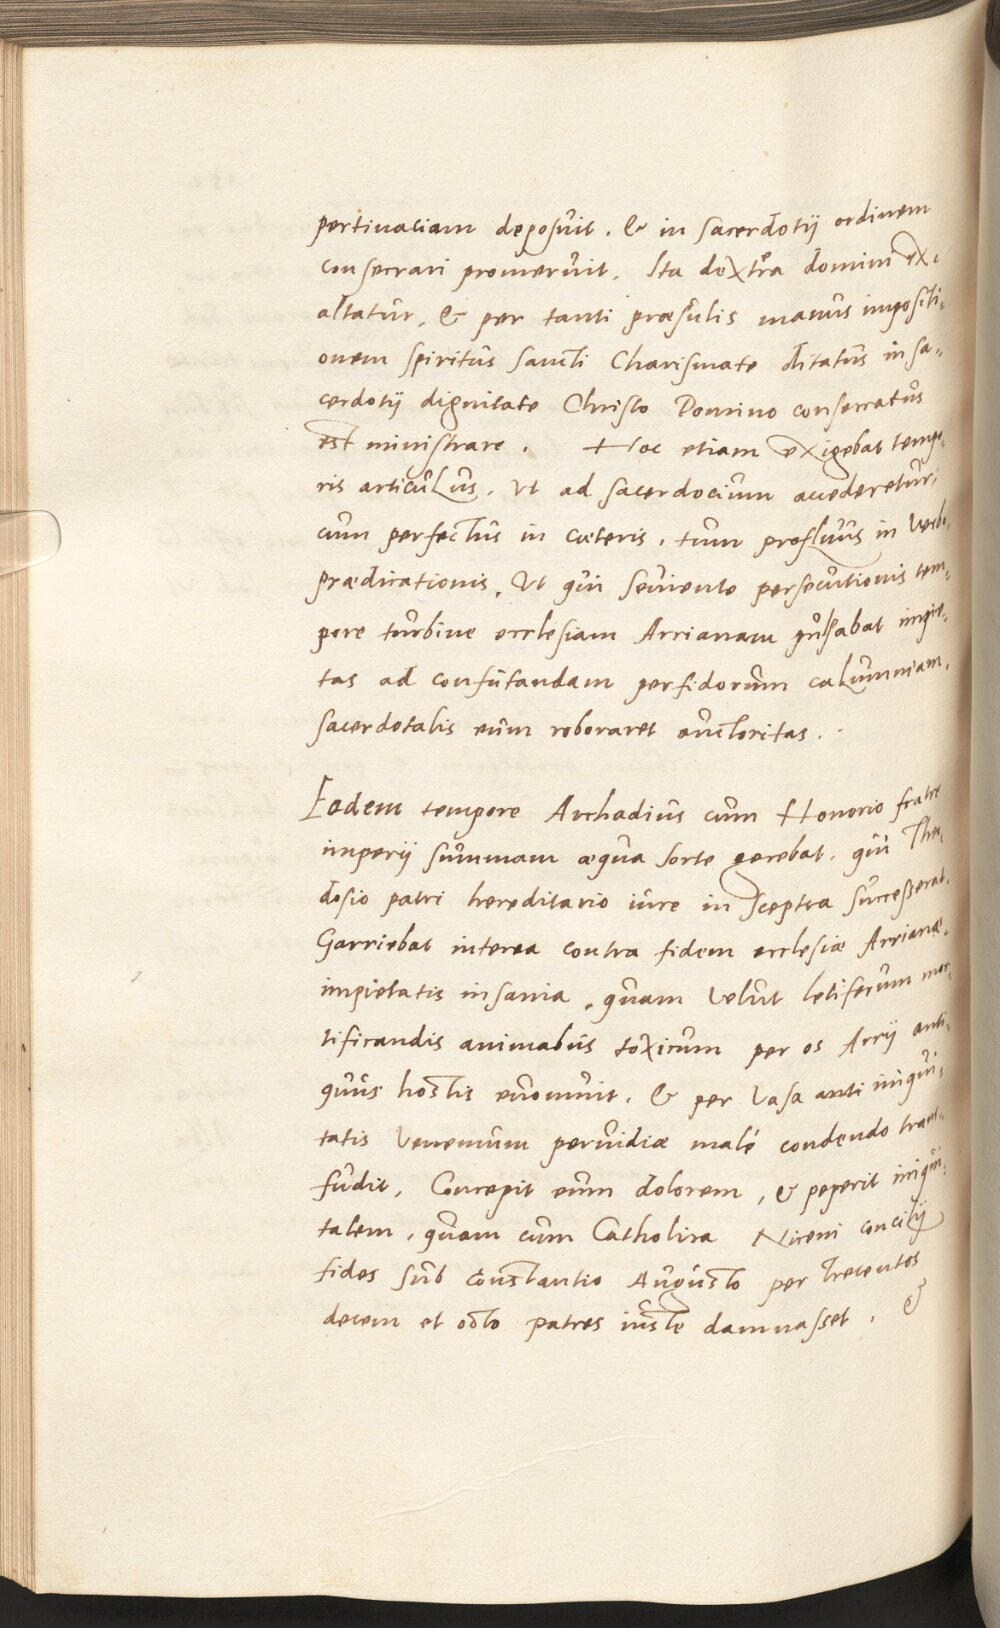 pertinaciam deposuit. & in sacerdotij ordinem
consecrari promeruit. Ita dextra domini ex-
altatur, & per tanti præsulis manus impositi-
onem spiritus sancti Charismate ditatus in sa-
cerdotij dignitate Christo Domino consecratus
est ministrare. Hoc etiam exigebat tempo-
ris articulus. Ut ad sacerdocium accederetur,
cum perfectus in cæteris, tum profluus in verbo
prædicationis, Ut qui seviente persecutionis tem-
pore turbine ecclesiam Arrianam pulsabat impie-
tas ad confutandam perfidorum calumniam,
sacerdotalis eum roboraret auctoritas.
Eodem tempore Archadius cum Honorio fratre
imperij summam æqua sorte gerebat. qui Theo-
dosio patri hereditario iure in sceptra successerat.
Garriebat interea contra fidem ecclesiæ Arrianæ
impietatis insania, quam velut letiferum mor-
tificandis animabus toxicum per os Arrij anti-
quus hostis evomuit. & per vasa anti iniqui-
tatis venenum pervidiæ malé condendo trans-
fudit, Concepit eum dolorem, & peperit iniqui-
tatem, quam cum Catholica Niceni concilij
fides sub Constantio Augusto per trecentos
decem et octo patres iuste damnasset. &